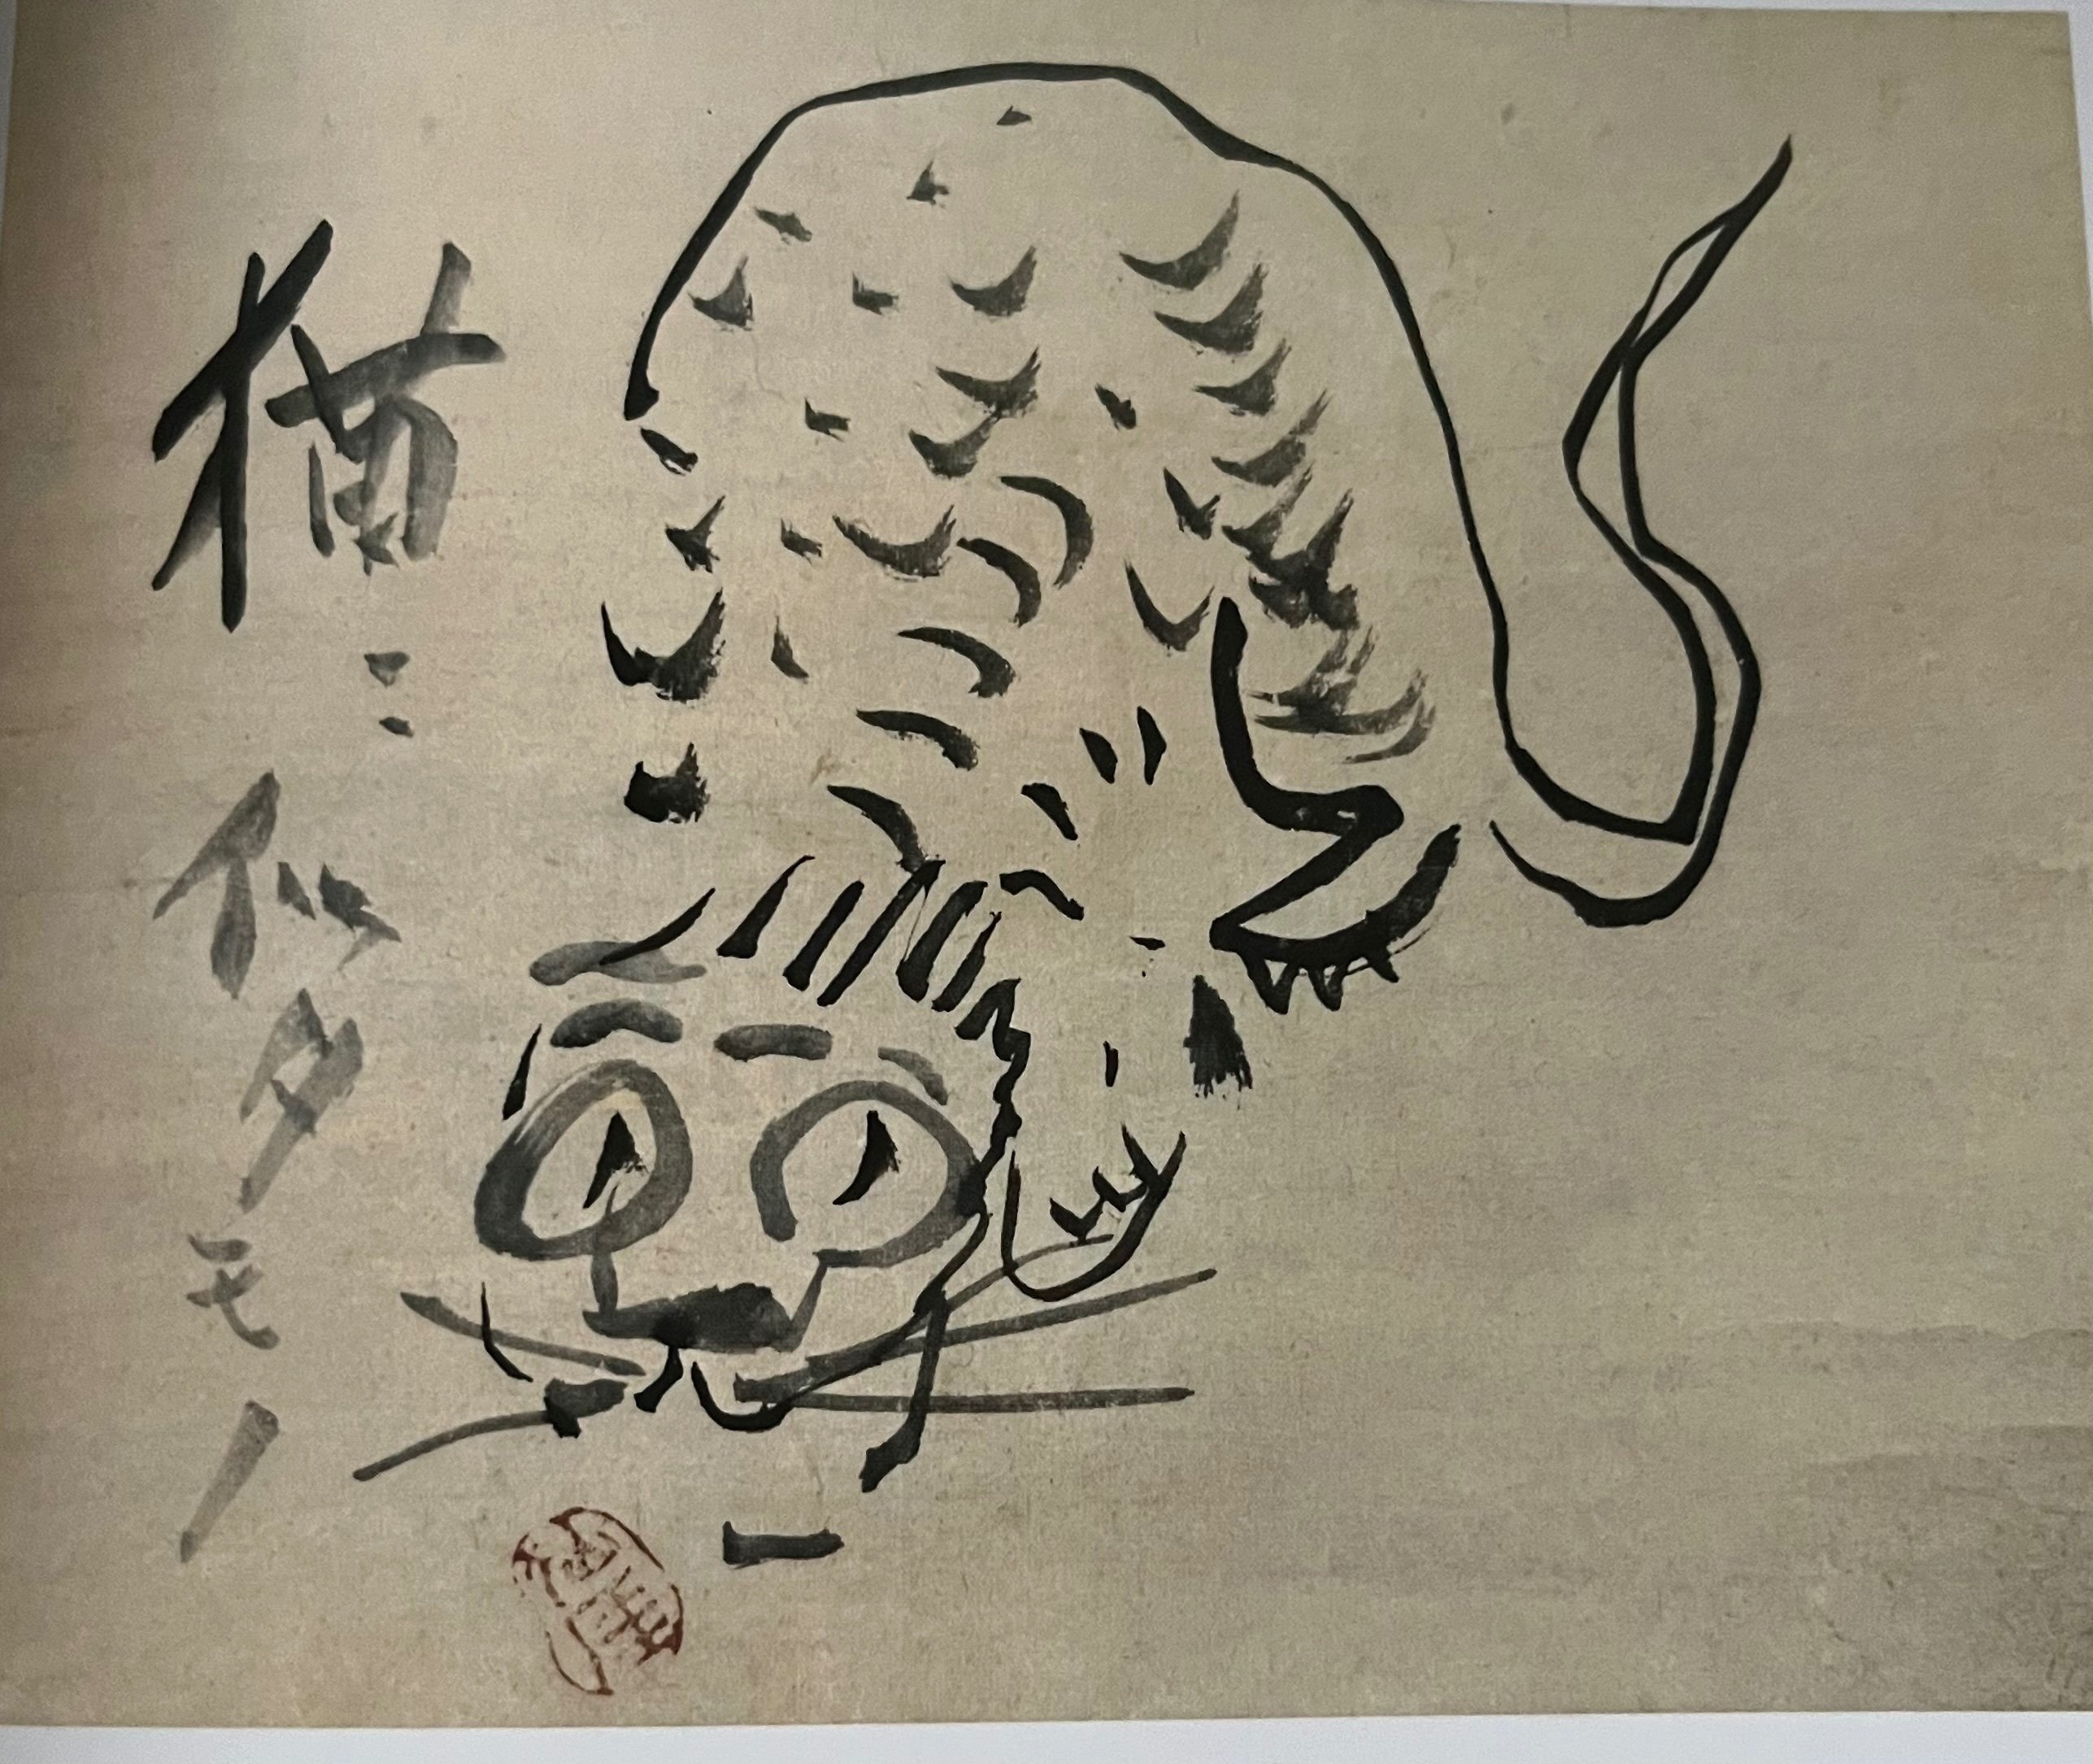 猫ニ似タモノ